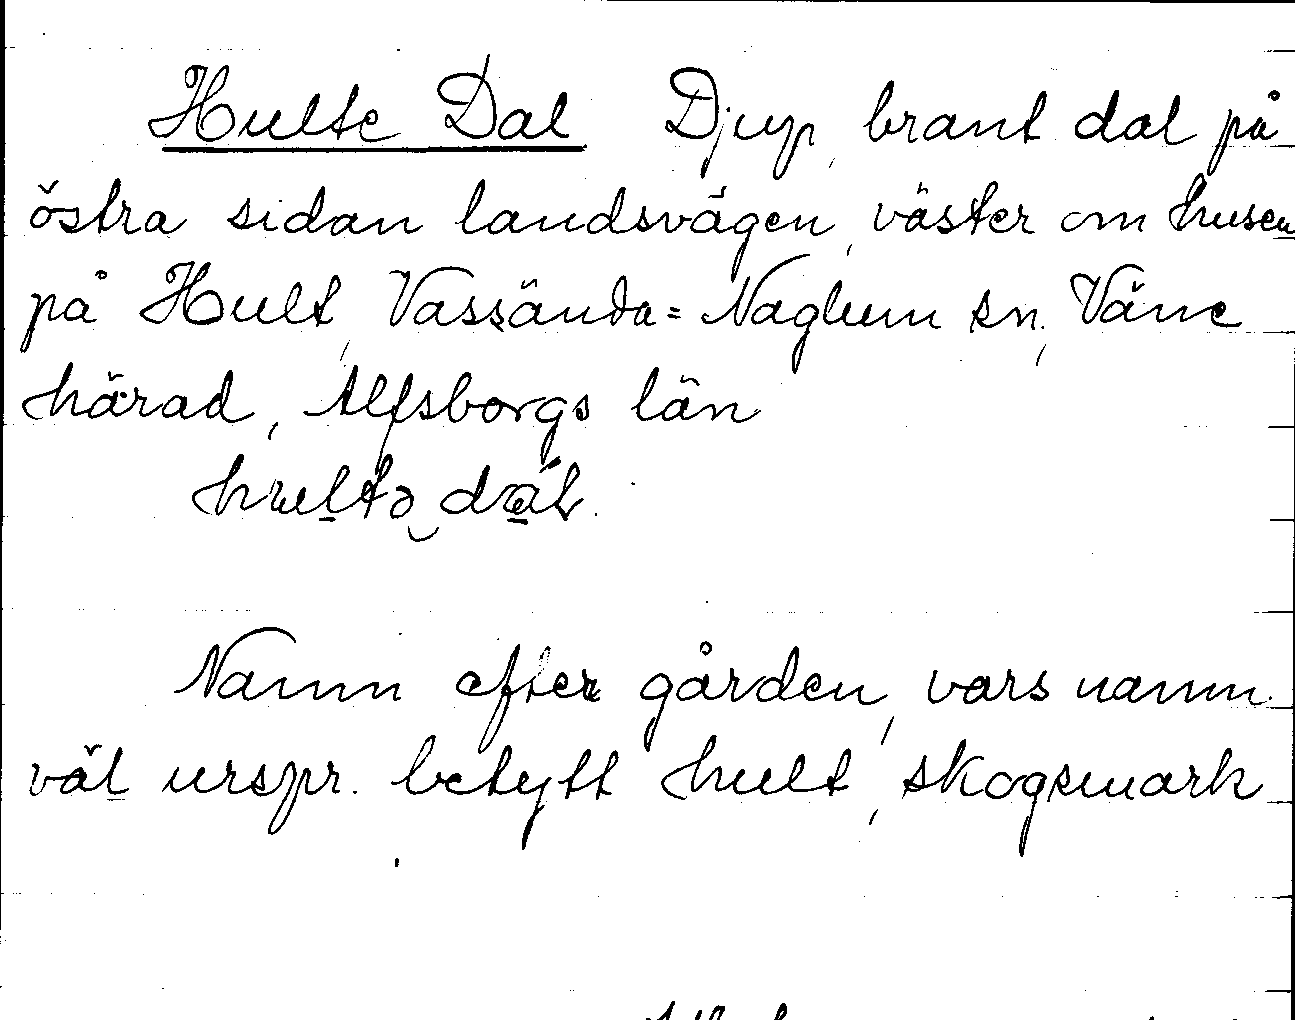 Hulte Dal Djup, brant dal på
östra sidan landsvägen, väster om husen
på Hult, Vassända=Naglum sn, Väne
härad, Älfsborgs län
Namn efter gården, vars namn
väl urspr. betytt hult, skogsmark